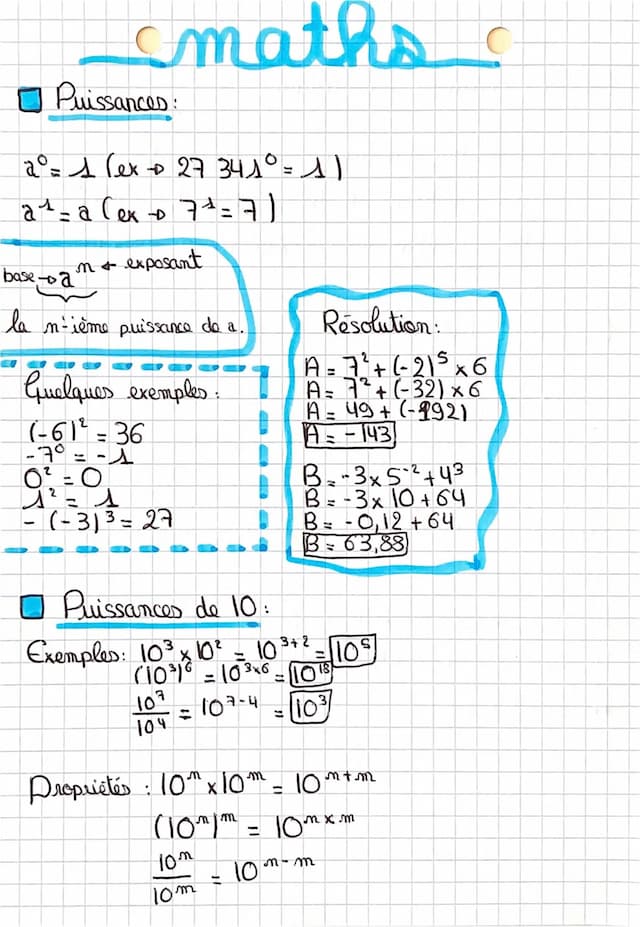 maths
Puissances :
a⁰ = 1 (ex → 27 341⁰ = 1)
a¹ = a (ex → 7¹ = 7)
base → aⁿ ← exposant
la n-ième puissance de a.
Quelques exemples :
(-6)² = 36
-7⁰ = -1
0² = 0
1² = 1
-(-3)³ = 27
Résolution :
A = 7² + (-2)⁵ × 6
A = 7² + (-32) × 6
A = 49 + (-192)
A = -143
B = -3 × 5⁻² + 4³
B = -3 × 10 + 64
B = -0,12 + 64
B = 63,88
Puissances de 10 :
Exemples : 10³ × 10² = 10³⁺² = 10⁵
(10³)⁶ = 10³ˣ⁶ = 10¹⁸
10⁷/10⁴ = 10⁷⁻⁴ = 10³
Propriétés : 10ⁿ × 10ᵐ = 10ⁿ⁺ᵐ
(10ⁿ)ᵐ = 10ⁿˣᵐ
10ⁿ/10ᵐ = 10ⁿ⁻ᵐ